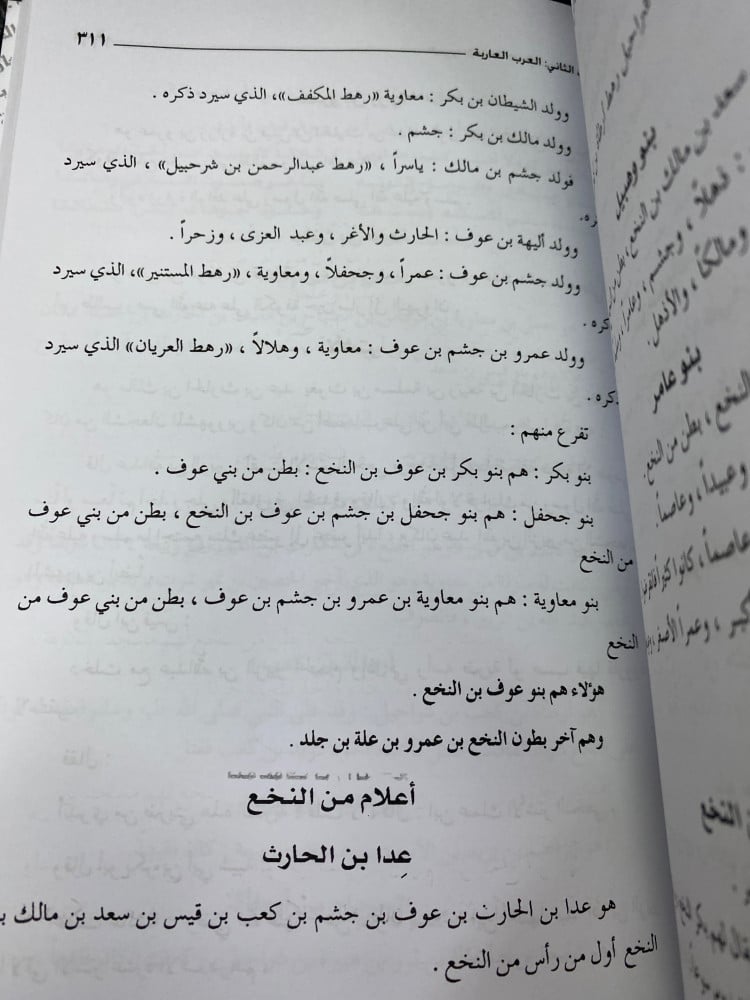 ٣١١
الثاني: العرب العاربة
وولد الشيطان بن بكر : معاوية «رهط المكفف»، الذي سيرد ذكره .
وولد مالك بن بكر : جشم .
فولد جشم بن مالك : ياسراً ، «رهط عبدالرحمن بن شرحبيل» ، الذي سيرد
ره.
وولد أليهة بن عوف : الحارث والأغر ، وعبد العزى ، وزحراً .
وولد جشم بن عوف : عمراً ، وجحفلاً ، ومعاوية ، «رهط المستنير»، الذي سيرد
كره .
وولد عمرو بن جشم بن عوف : معاوية ، وهلالاً ، «رهط العريان» الذي سيرد
ذكره .
تفرع منهم :
بنو بكر : هم بنو بكر بن عوف بن النخع : بطن من بني عوف .
بنو جحفل : هم بنو جحفل بن جشم بن عوف بن النخع ، بطن من بني عوف
من النخع
بنو معاوية : هم بنو معاوية بن عمرو بن جشم بن عوف ، بطن من بني عوف من
النخع
هؤلاء هم بنو عوف بن النخع .
وهم آخر بطون النخع بن عمرو بن علة بن جلد .
أعلام من النخع
عِدا بن الحارث
هو عدا بن الحارث بن عوف بن جشم بن كعب بن قيس بن سعد بن مالك ب
النخع أول من رأس من النخع .
بنو وهبيل
سعد بن مالك بن النخع، بطن من
: ذهلاً ، وجشم ، وعامراً
ومالكاً ، والأذهل.
بنو عامر
النخع ، بطن من النخع.
وعبيداً ، وعاصماً.
عاصماً ، كانوا
كبير ، وعمراً الأصغر
النخع